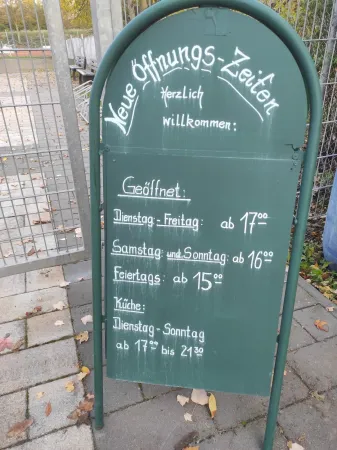 Neue Öffnungs-Zeiten
Herzlich
willkommen:
Geöffnet:
Dienstag-Freitag: ab 17⁰⁰
Samstag: und Sonntag: ab 16⁰⁰
Feiertags: ab 15⁰⁰
Küche:
Dienstag-Sonntag
ab 17⁰⁰ bis 21³⁰